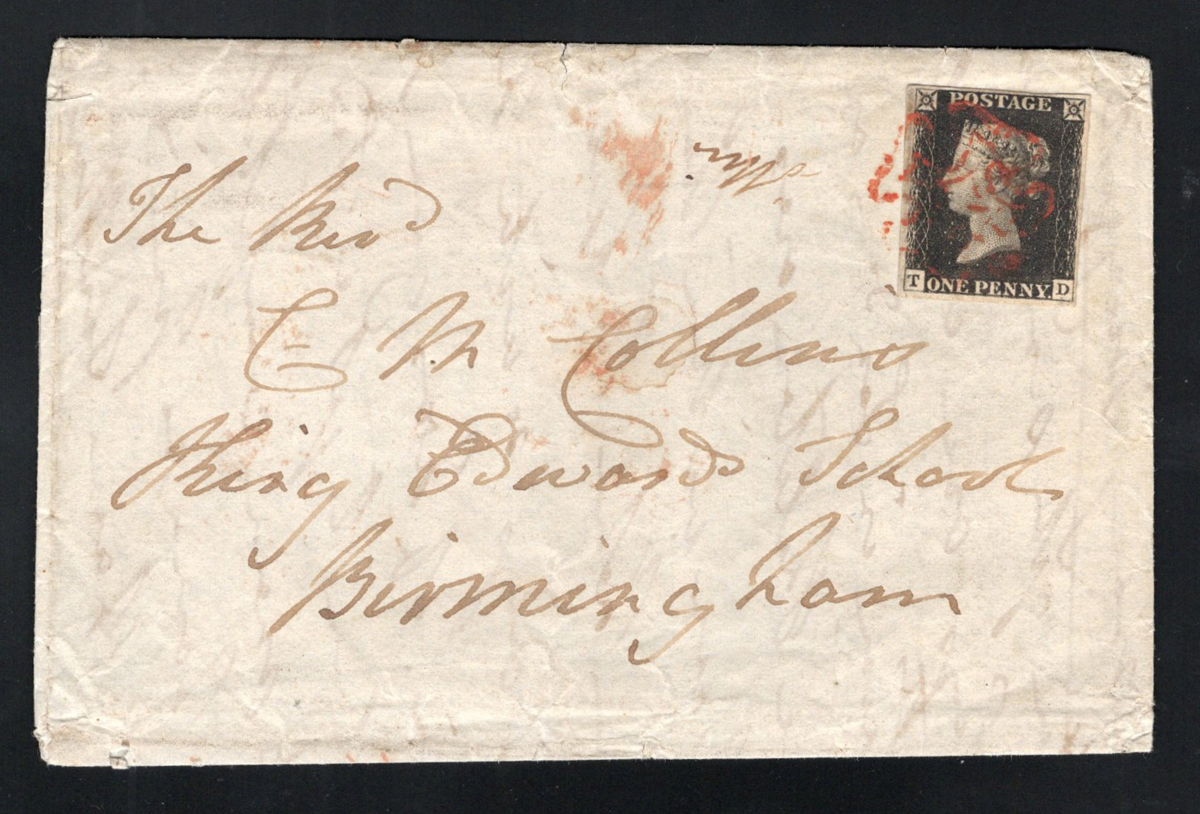 POSTAGE
T ONE PENNY. D
The Revd
C M Collins
King Edwards School
Birmingham